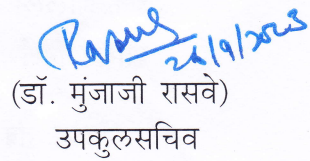 26/9/2023
(डॉ. मुंजाजी रासवे)
उपकुलसचिव